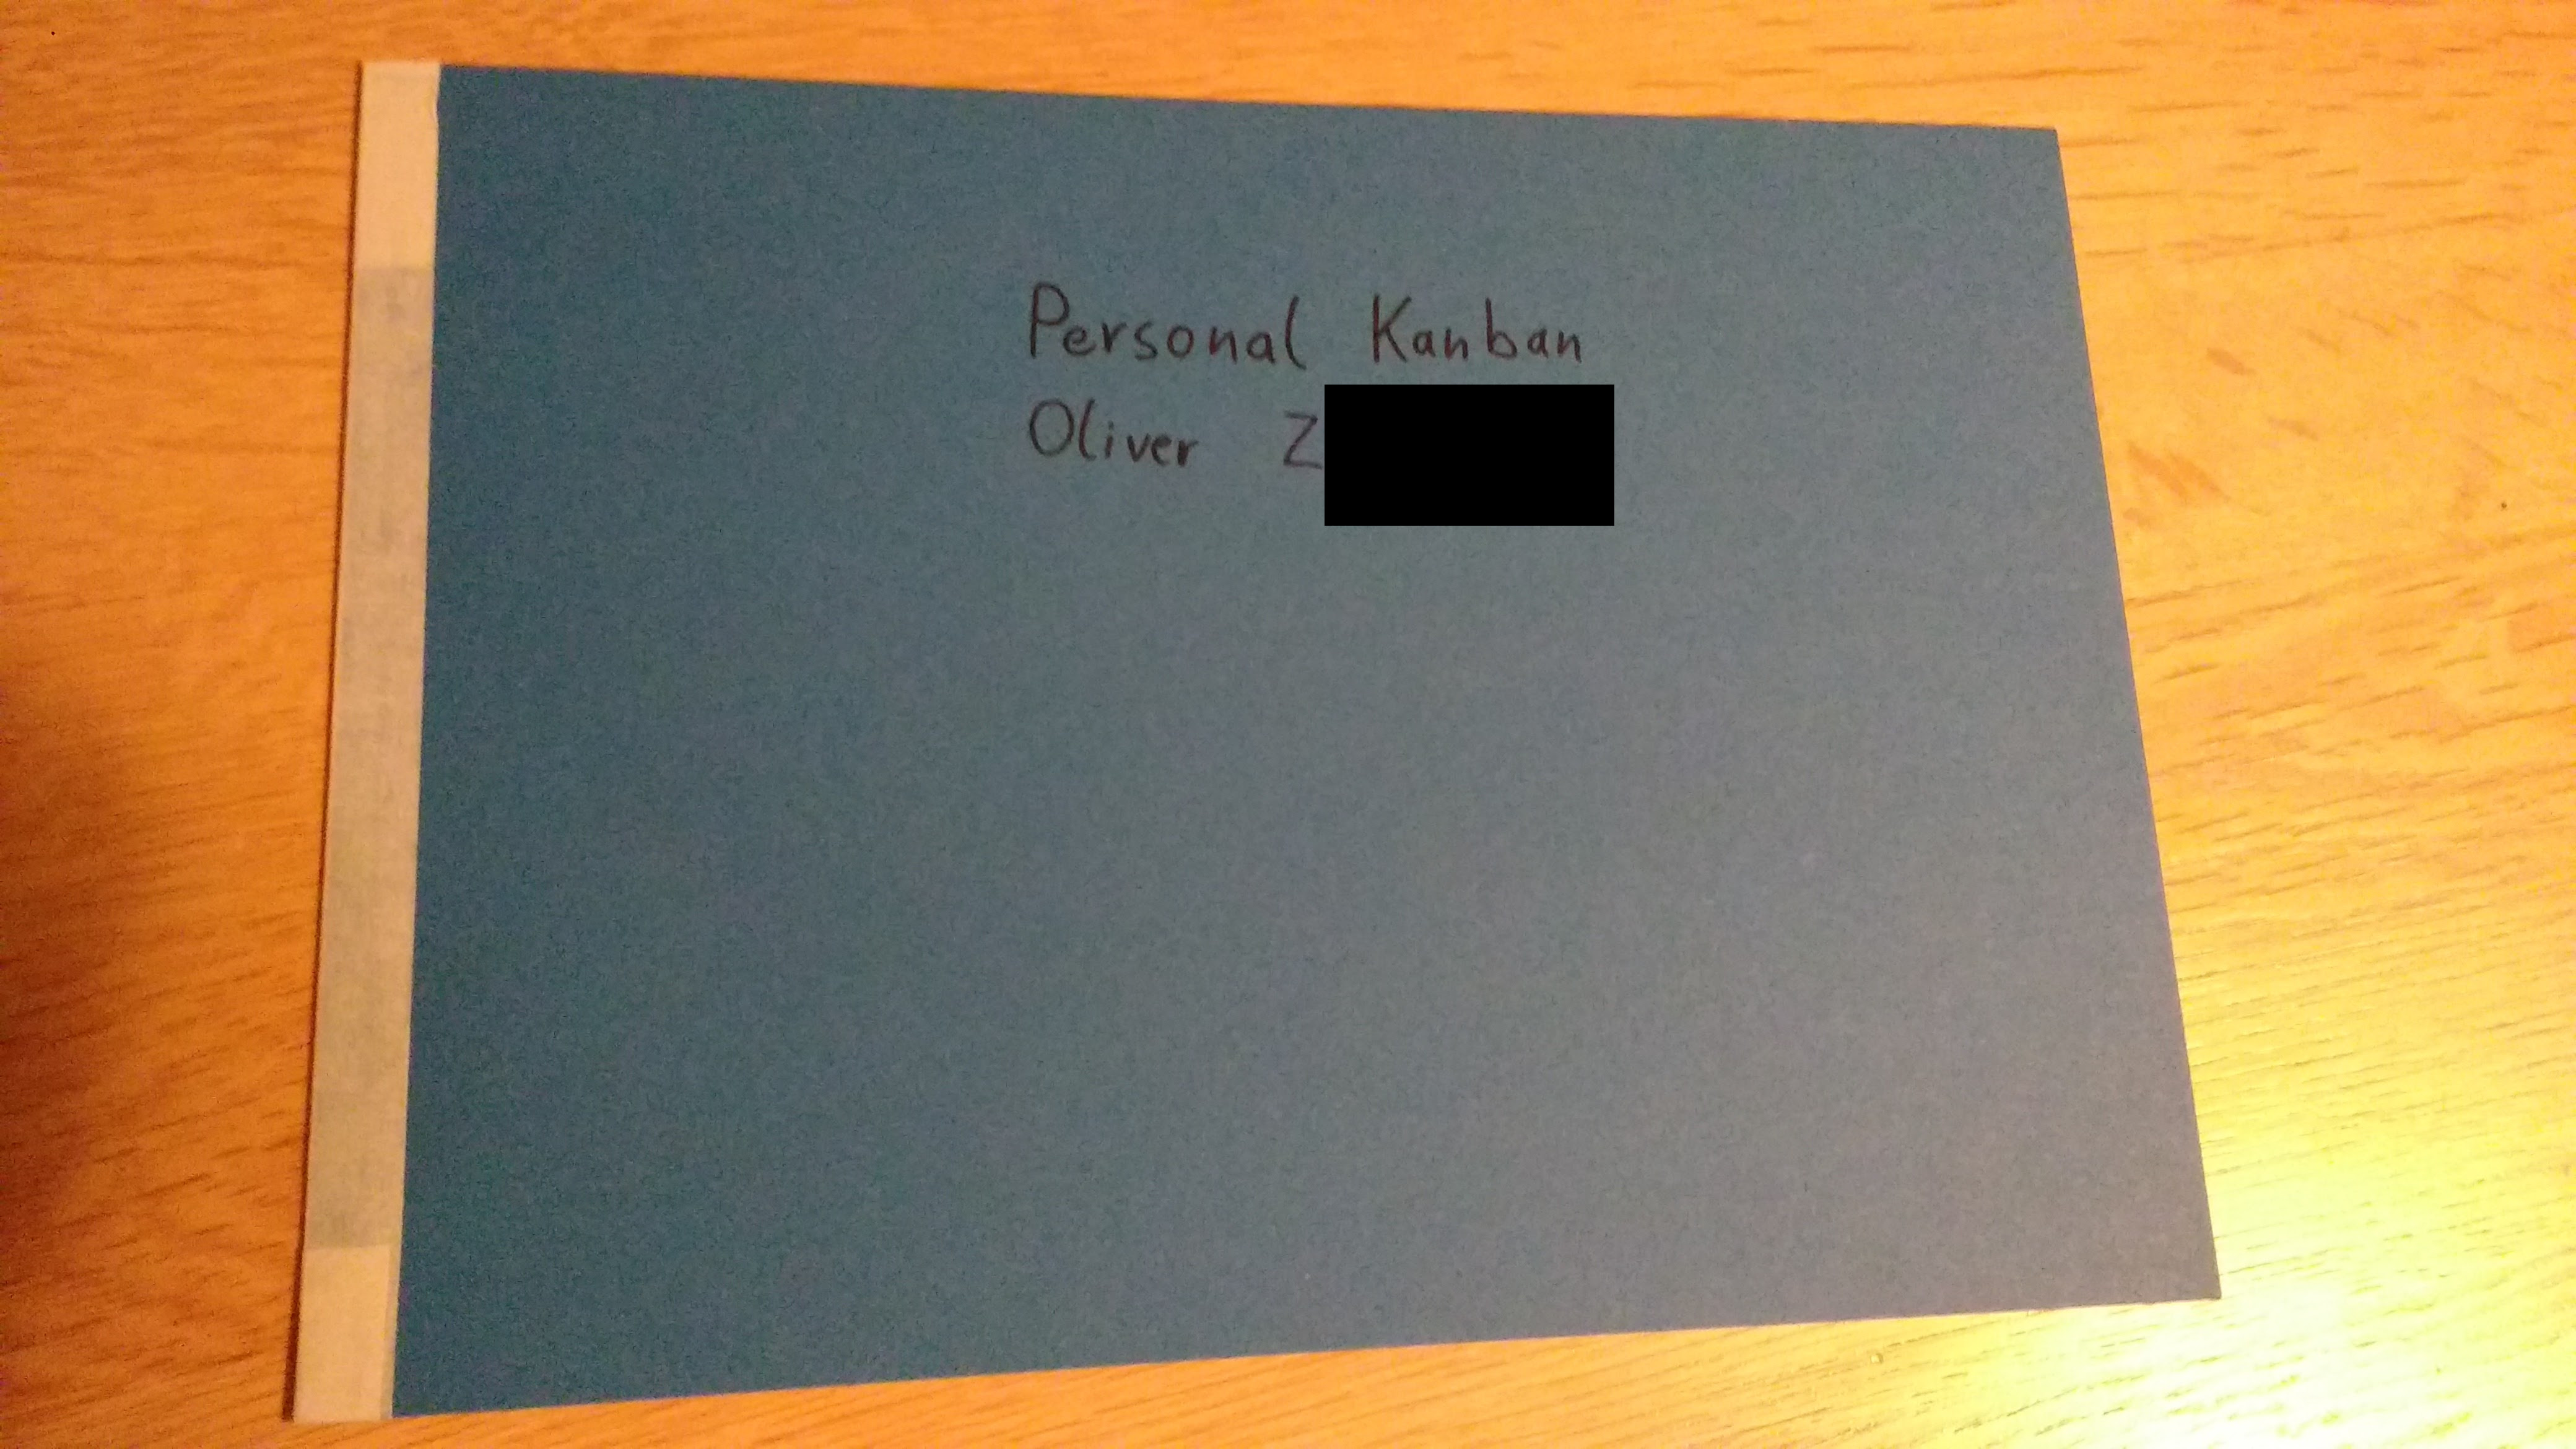 Personal Kanban
Oliver Z